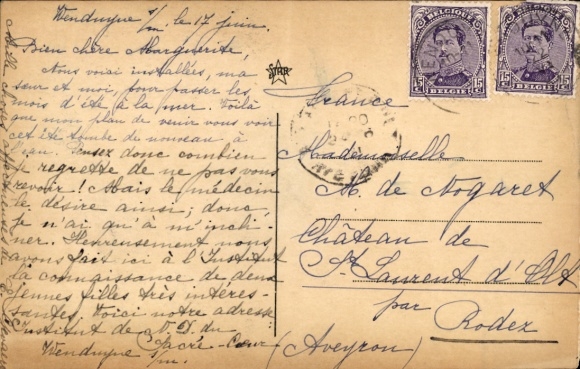 Wenduyne s/m. le 17 juin.
Bien chère Marguerite,
Nous voici installées, ma
sœur et moi, pour passer les
mois d'été à la mer. Voilà
que mon plan de venir vous voir
cet été tombe de nouveau à
l'eau. Pensez donc combien
je regrette de ne pas vous
revoir! Mais le médecin
le désire ainsi; donc,
je n'ai qu'à m'incli-
ner. Heureusement nous
avons fait ici à l'Institut
la connaissance de deux
jeunes filles très intéres-
santes. Voici notre adresse
Institut de N. D. du
Sacré-Cœur
Wenduyne s/m.
Mille choses affectueuses de
VRR
BELGIQUE
15 c 15 c
BELGIË
BELGIQUE
15 c 15 c
BELGIË
France
Mademoiselle
M. de Nogaret
Château de
St Laurent d'Olt
par
Rodez
(Aveyron)